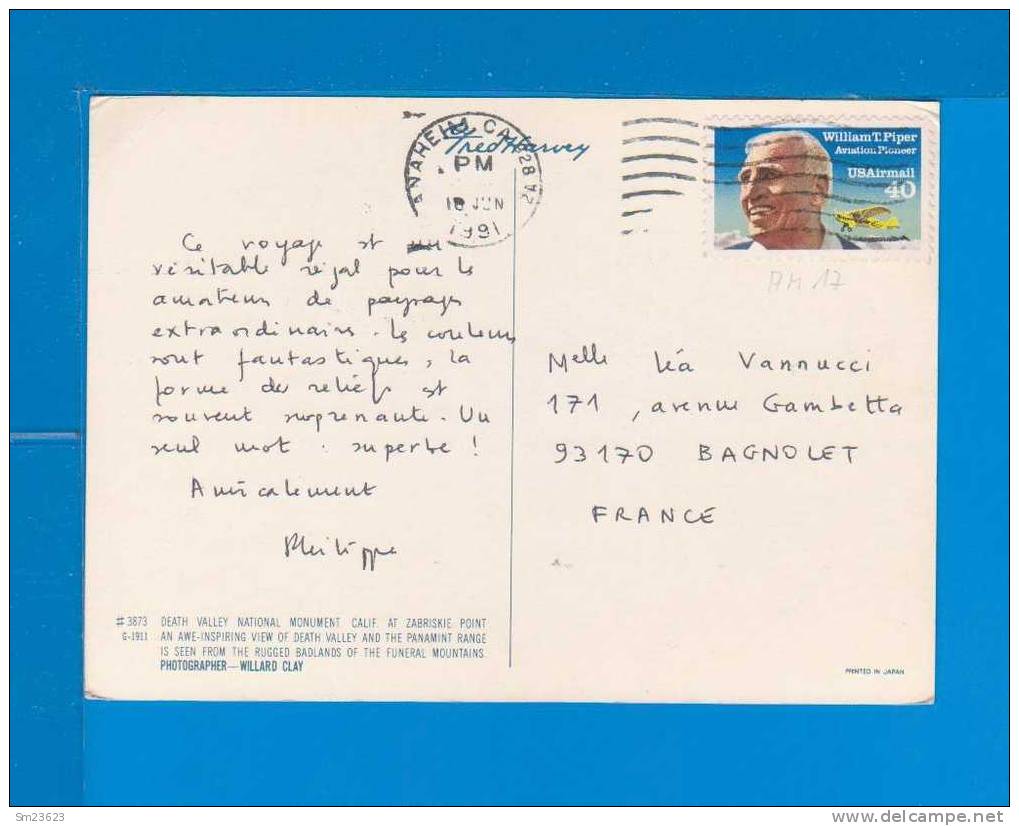 ANAHEIM, CA 928
PM
18 JUN
1991
Fred Harvey
William T. Piper
Aviation Pioneer
USAirmail
40
AM 17
Ce voyage est un
véritable régal pour les
amateurs de paysages
extraordinaires. Les couleurs
sont fantastiques, la
forme des reliefs est
souvent surprenante. Un
seul mot : superbe !
Amicalement
Philippe
Melle Léa Vannucci
171, avenue Gambetta
93170 BAGNOLET
FRANCE
#3873 DEATH VALLEY NATIONAL MONUMENT CALIF. AT ZABRISKIE POINT
G-1911 AN AWE-INSPIRING VIEW OF DEATH VALLEY AND THE PANAMINT RANGE
IS SEEN FROM THE RUGGED BADLANDS OF THE FUNERAL MOUNTAINS.
PHOTOGRAPHER—WILLARD CLAY
PRINTED IN JAPAN
Sm23623
delcampe.net